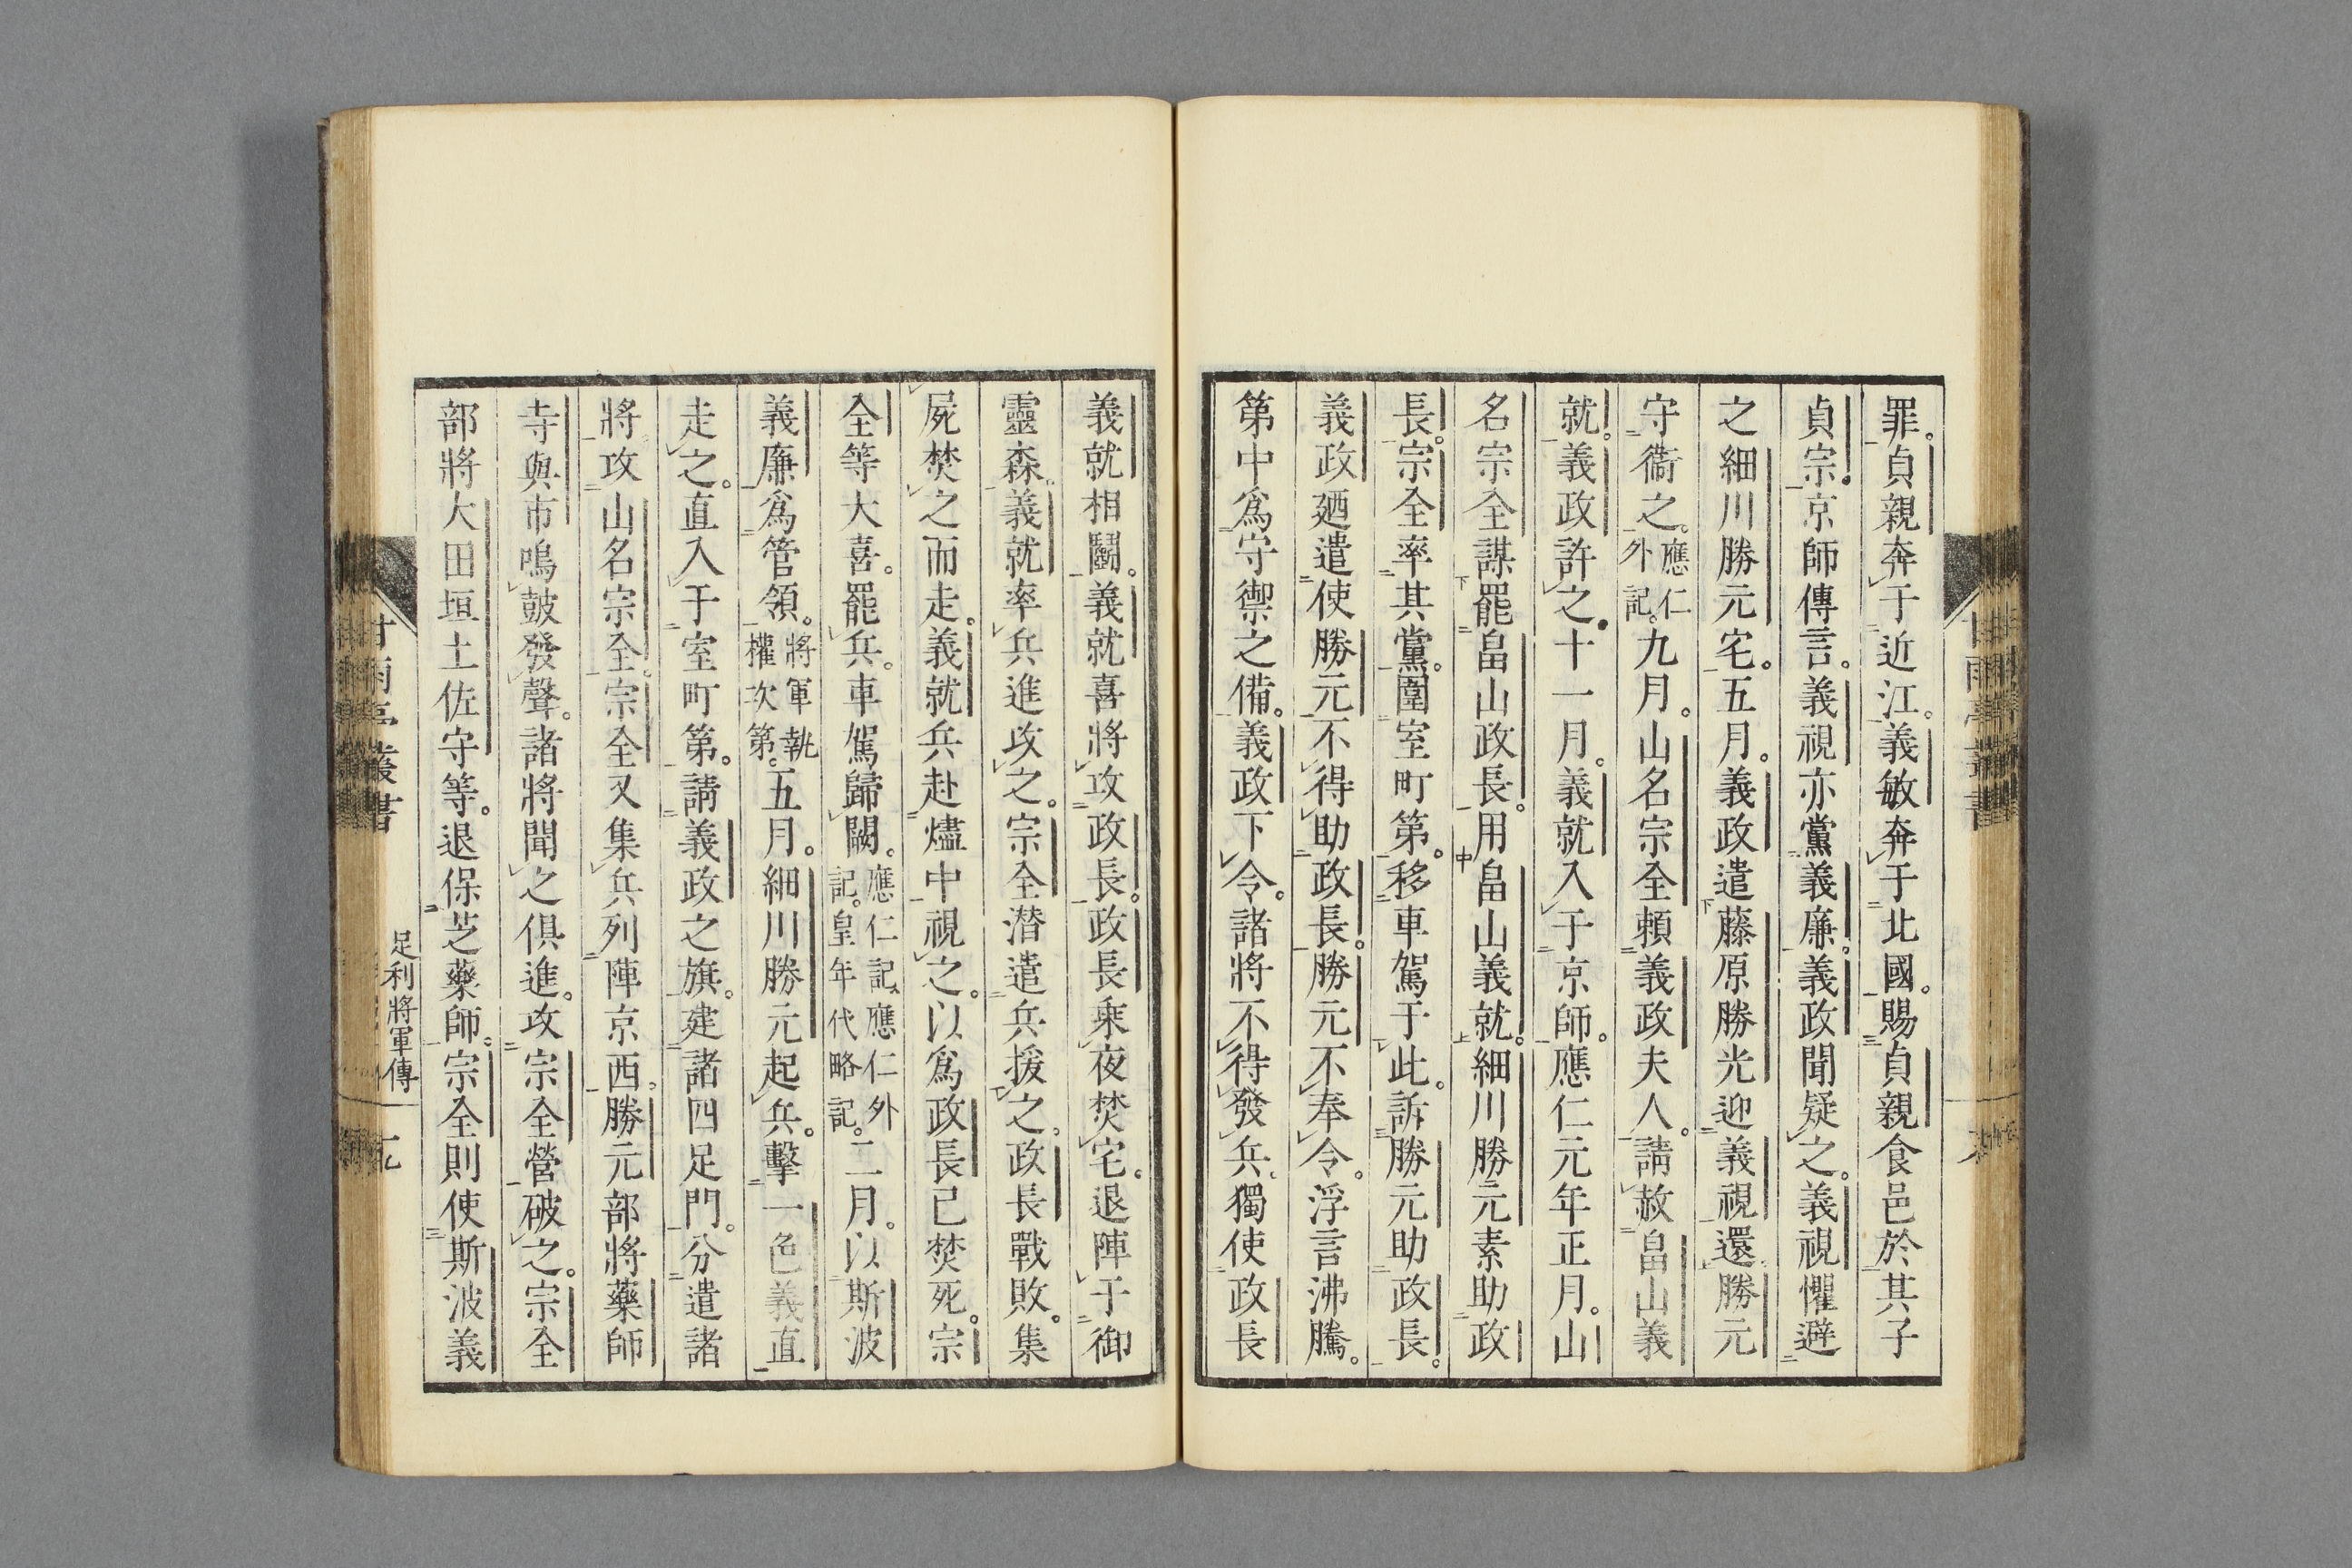 罪。貞親奔于近江。義敏奔于北國。賜貞親食邑於其子
貞宗。京師傳言。義視亦黨義廉。義政聞疑之。義視懼避
之細川勝元宅。五月。義政遣藤原勝光迎義視還。勝元
守衞之。應仁外記。九月。山名宗全頼義政夫人。請赦畠山義
就。義政許之。十一月。義就入于京師。應仁元年正月。山
名宗全謀罷畠山政長。用畠山義就。細川勝元素助政
長。宗全率其黨。圍室町第。移車駕于此。訴勝元助政長。
義政廼遣使勝元不得助政長。勝元不奉令。浮言沸騰。
第中爲守禦之備。義政下令。諸將不得發兵。獨使政長
義就相鬭。義就喜將攻政長。政長乘夜焚宅。退陣于御
靈森。義就率兵進攻之。宗全潜遣兵援之。政長戰敗。集
屍焚之而走。義就兵赴燼中視之。以爲政長已焚死。宗
全等大喜。罷兵。車駕歸闕。應仁記。應仁外記。皇年代略記。二月。以斯波
義廉爲管領。將軍執權次第。五月。細川勝元起兵。擊一色義直
走之。直入于室町第。請義政之旗。建諸四足門。分遣諸
將攻山名宗全。宗全又集兵列陣京西。勝元部將藥師
寺與市鳴鼓發聲。諸將聞之俱進。攻宗全營破之。宗全
部將大田垣土佐守等。退保芝藥師。宗全則使斯波義
甘雨亭叢書
足利將軍傳
十九